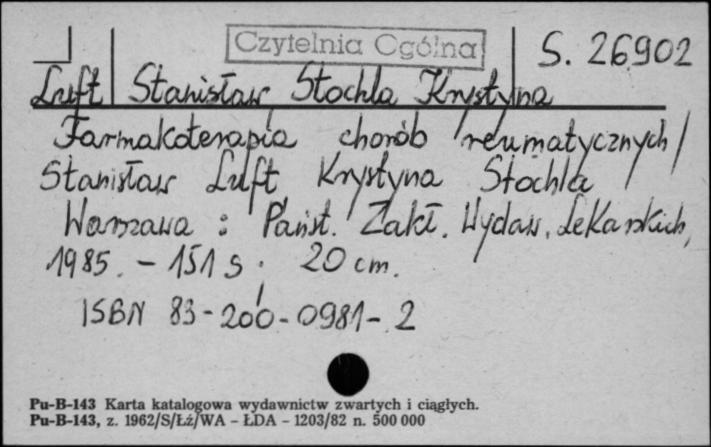 Czytelnia Ogólna
S. 26902
Luft Stanisław Stochla Krystyna
Farmakoterapia chorób reumatycznych /
Stanisław Luft Krystyna Stochla
Warszawa : Państ. Zakł. Wydaw. Lekarskich,
1985. - 151 s. 20 cm.
ISBN 83-200-0981-2
Pu-B-143 Karta katalogowa wydawnictw zwartych i ciągłych.
Pu-B-143, z. 1962/S/Łź/WA - ŁDA - 1203/82 n. 500 000